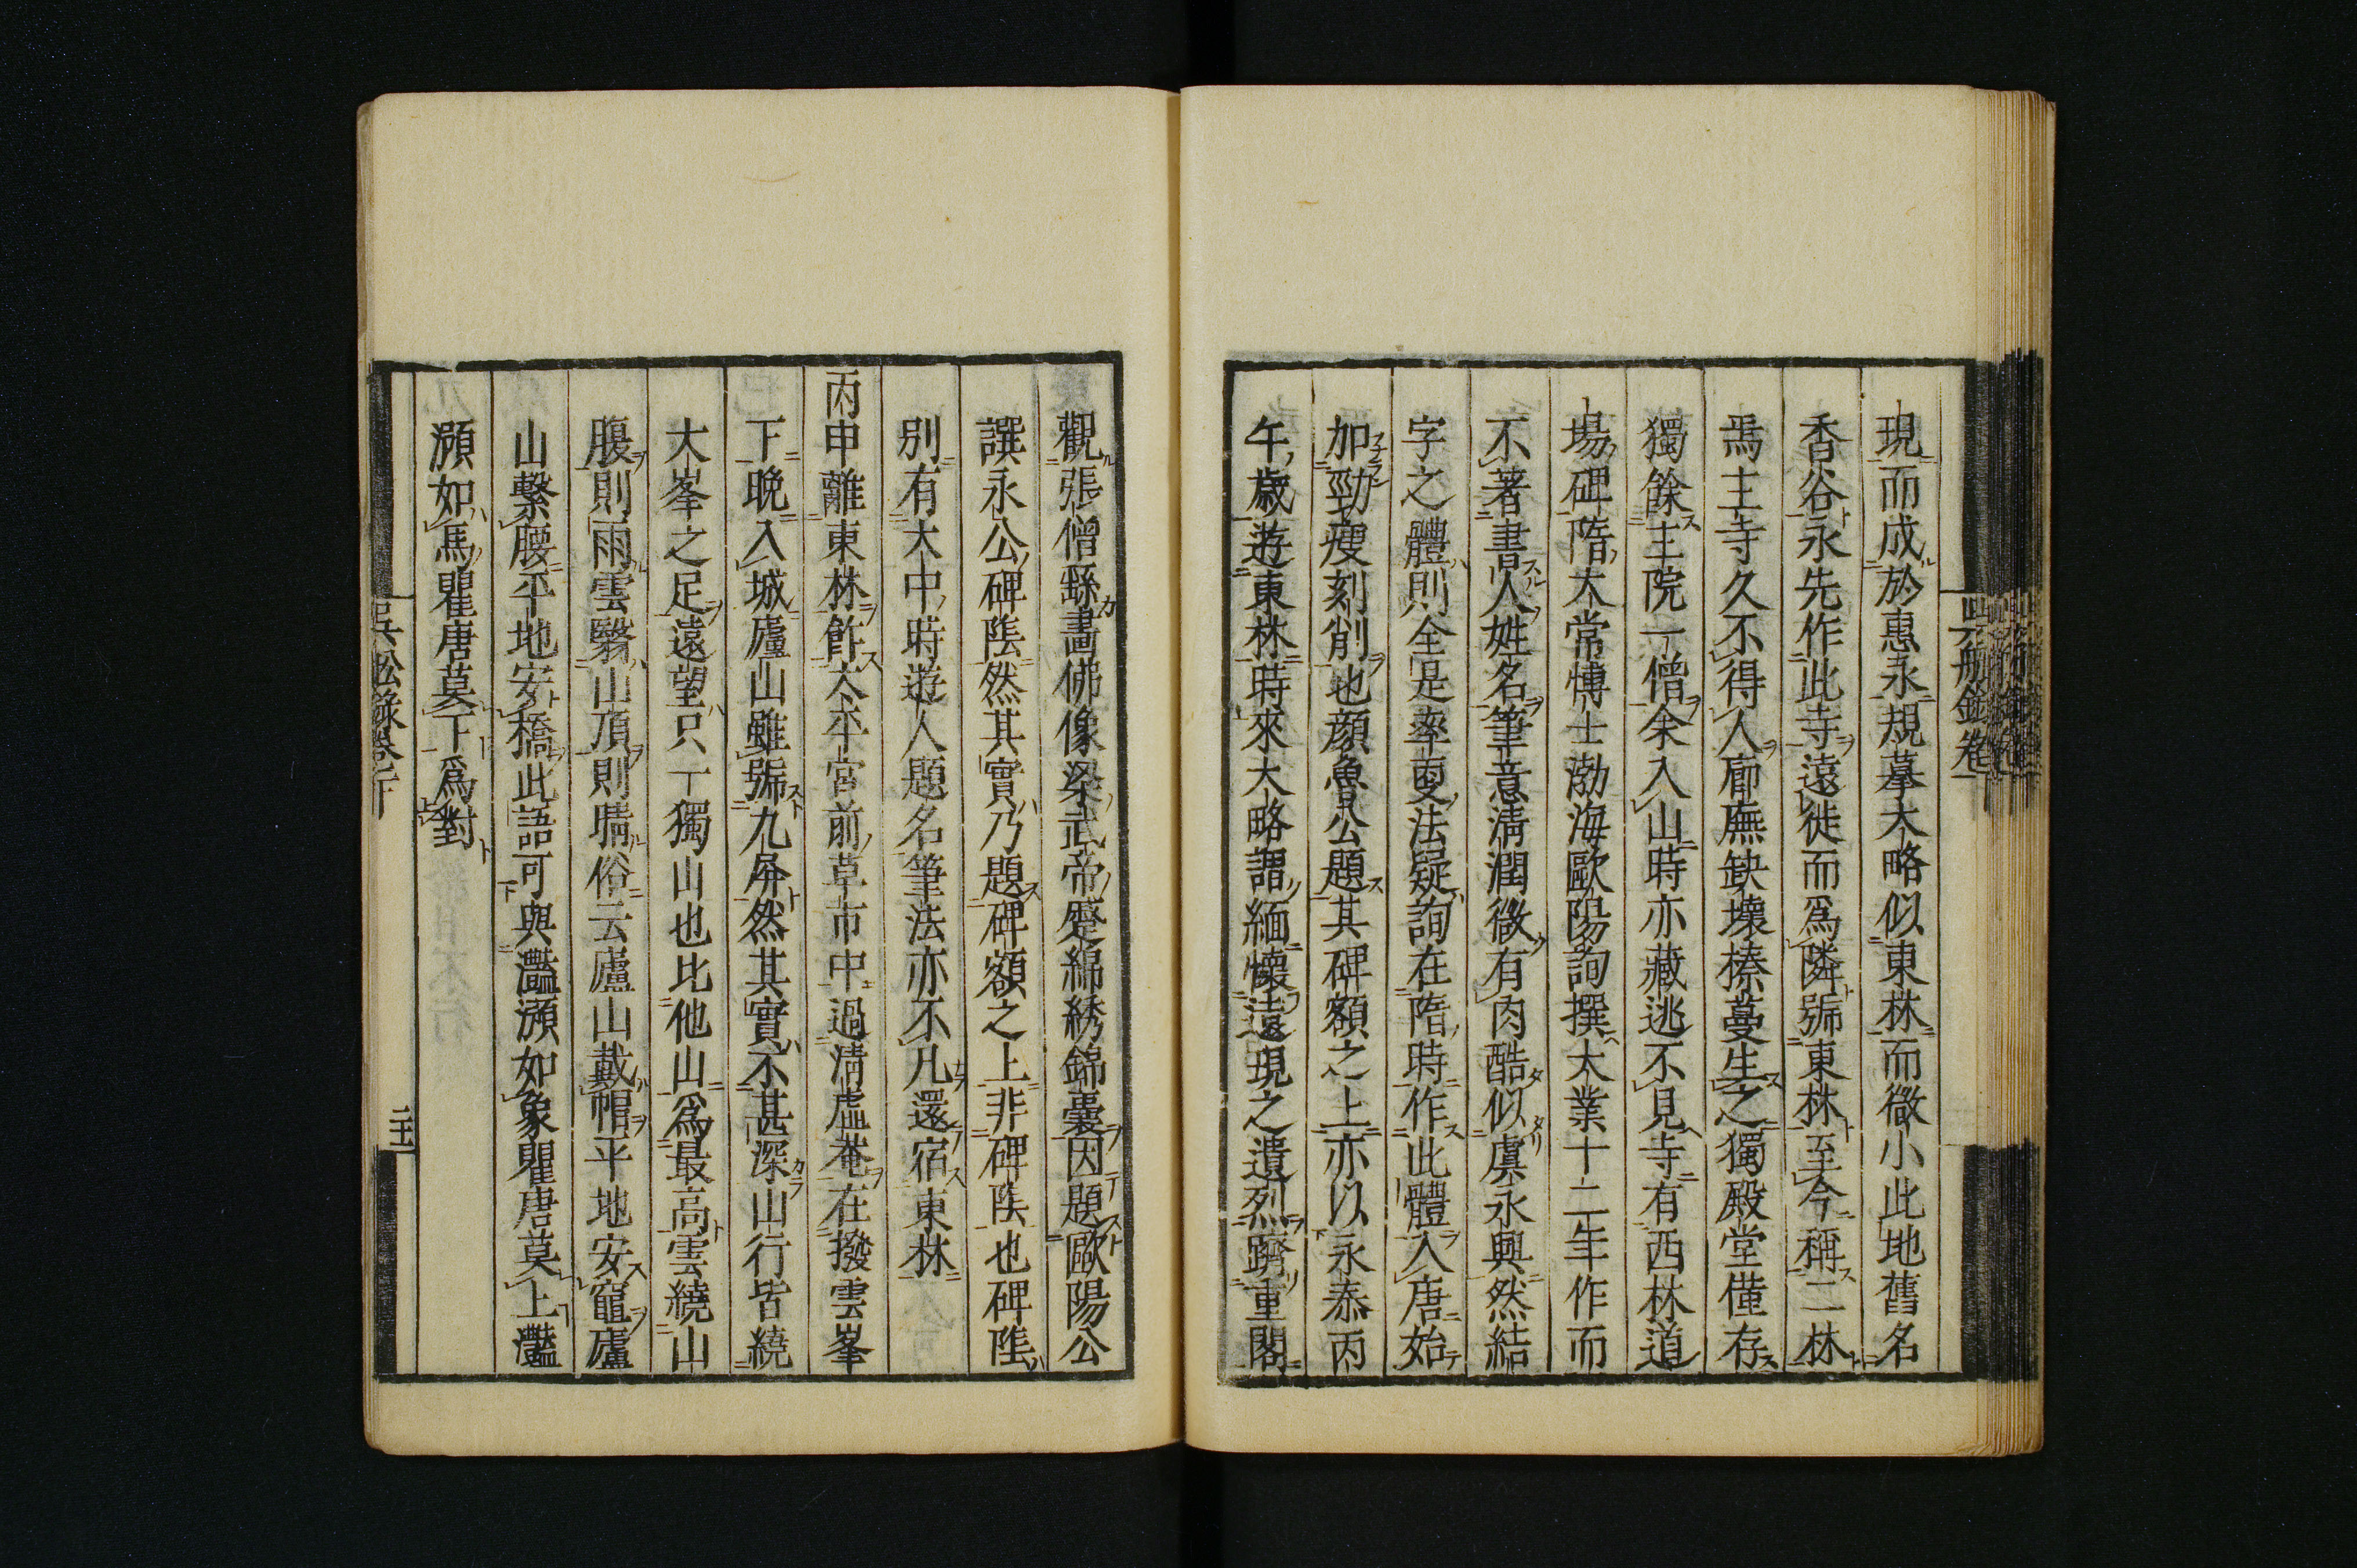 現而成於惠永規摹大略似東林而微小此地舊名
香谷永先作此寺遠徙而爲隣號東林至今稱二林
焉主寺久不得人廊廡缺壞榛蔓生之獨殿堂僅存
獨餘主院一僧余入山時亦藏逃不見寺有西林道
場碑隋大常博士渤海歐陽詢撰大業十二年作而
不著書人姓名筆意淸潤微有肉酷似虞永興然結
字之體則全是率更法疑詢在隋時作此體入唐始
加勁瘦刻削也顔魯公題其碑額之上亦以永泰丙
午歲遊東林時來大略謂緬懷遠現之遺烈躋重閣
觀張僧繇畫佛像梁武帝蹙綿綉錦囊因題歐陽公
譔永公碑陰然其實乃題碑額之上非碑陰也碑陰
別有大中時遊人題名筆法亦不凡還宿東林
丙申離東林飰太平宮前草市中過淸虛菴在撥雲峯
下晚入城廬山雖號九屏然其實不甚深山行皆繞
大峯之足遠望只一獨山也比他山爲最高雲繞山
腹則雨雲翳山頂則晴俗云廬山戴帽平地安竈廬
山繫腰平地安橋此語可與灩澦如象瞿唐莫上灩
澦如馬瞿唐莫下爲對
吳松錄卷下